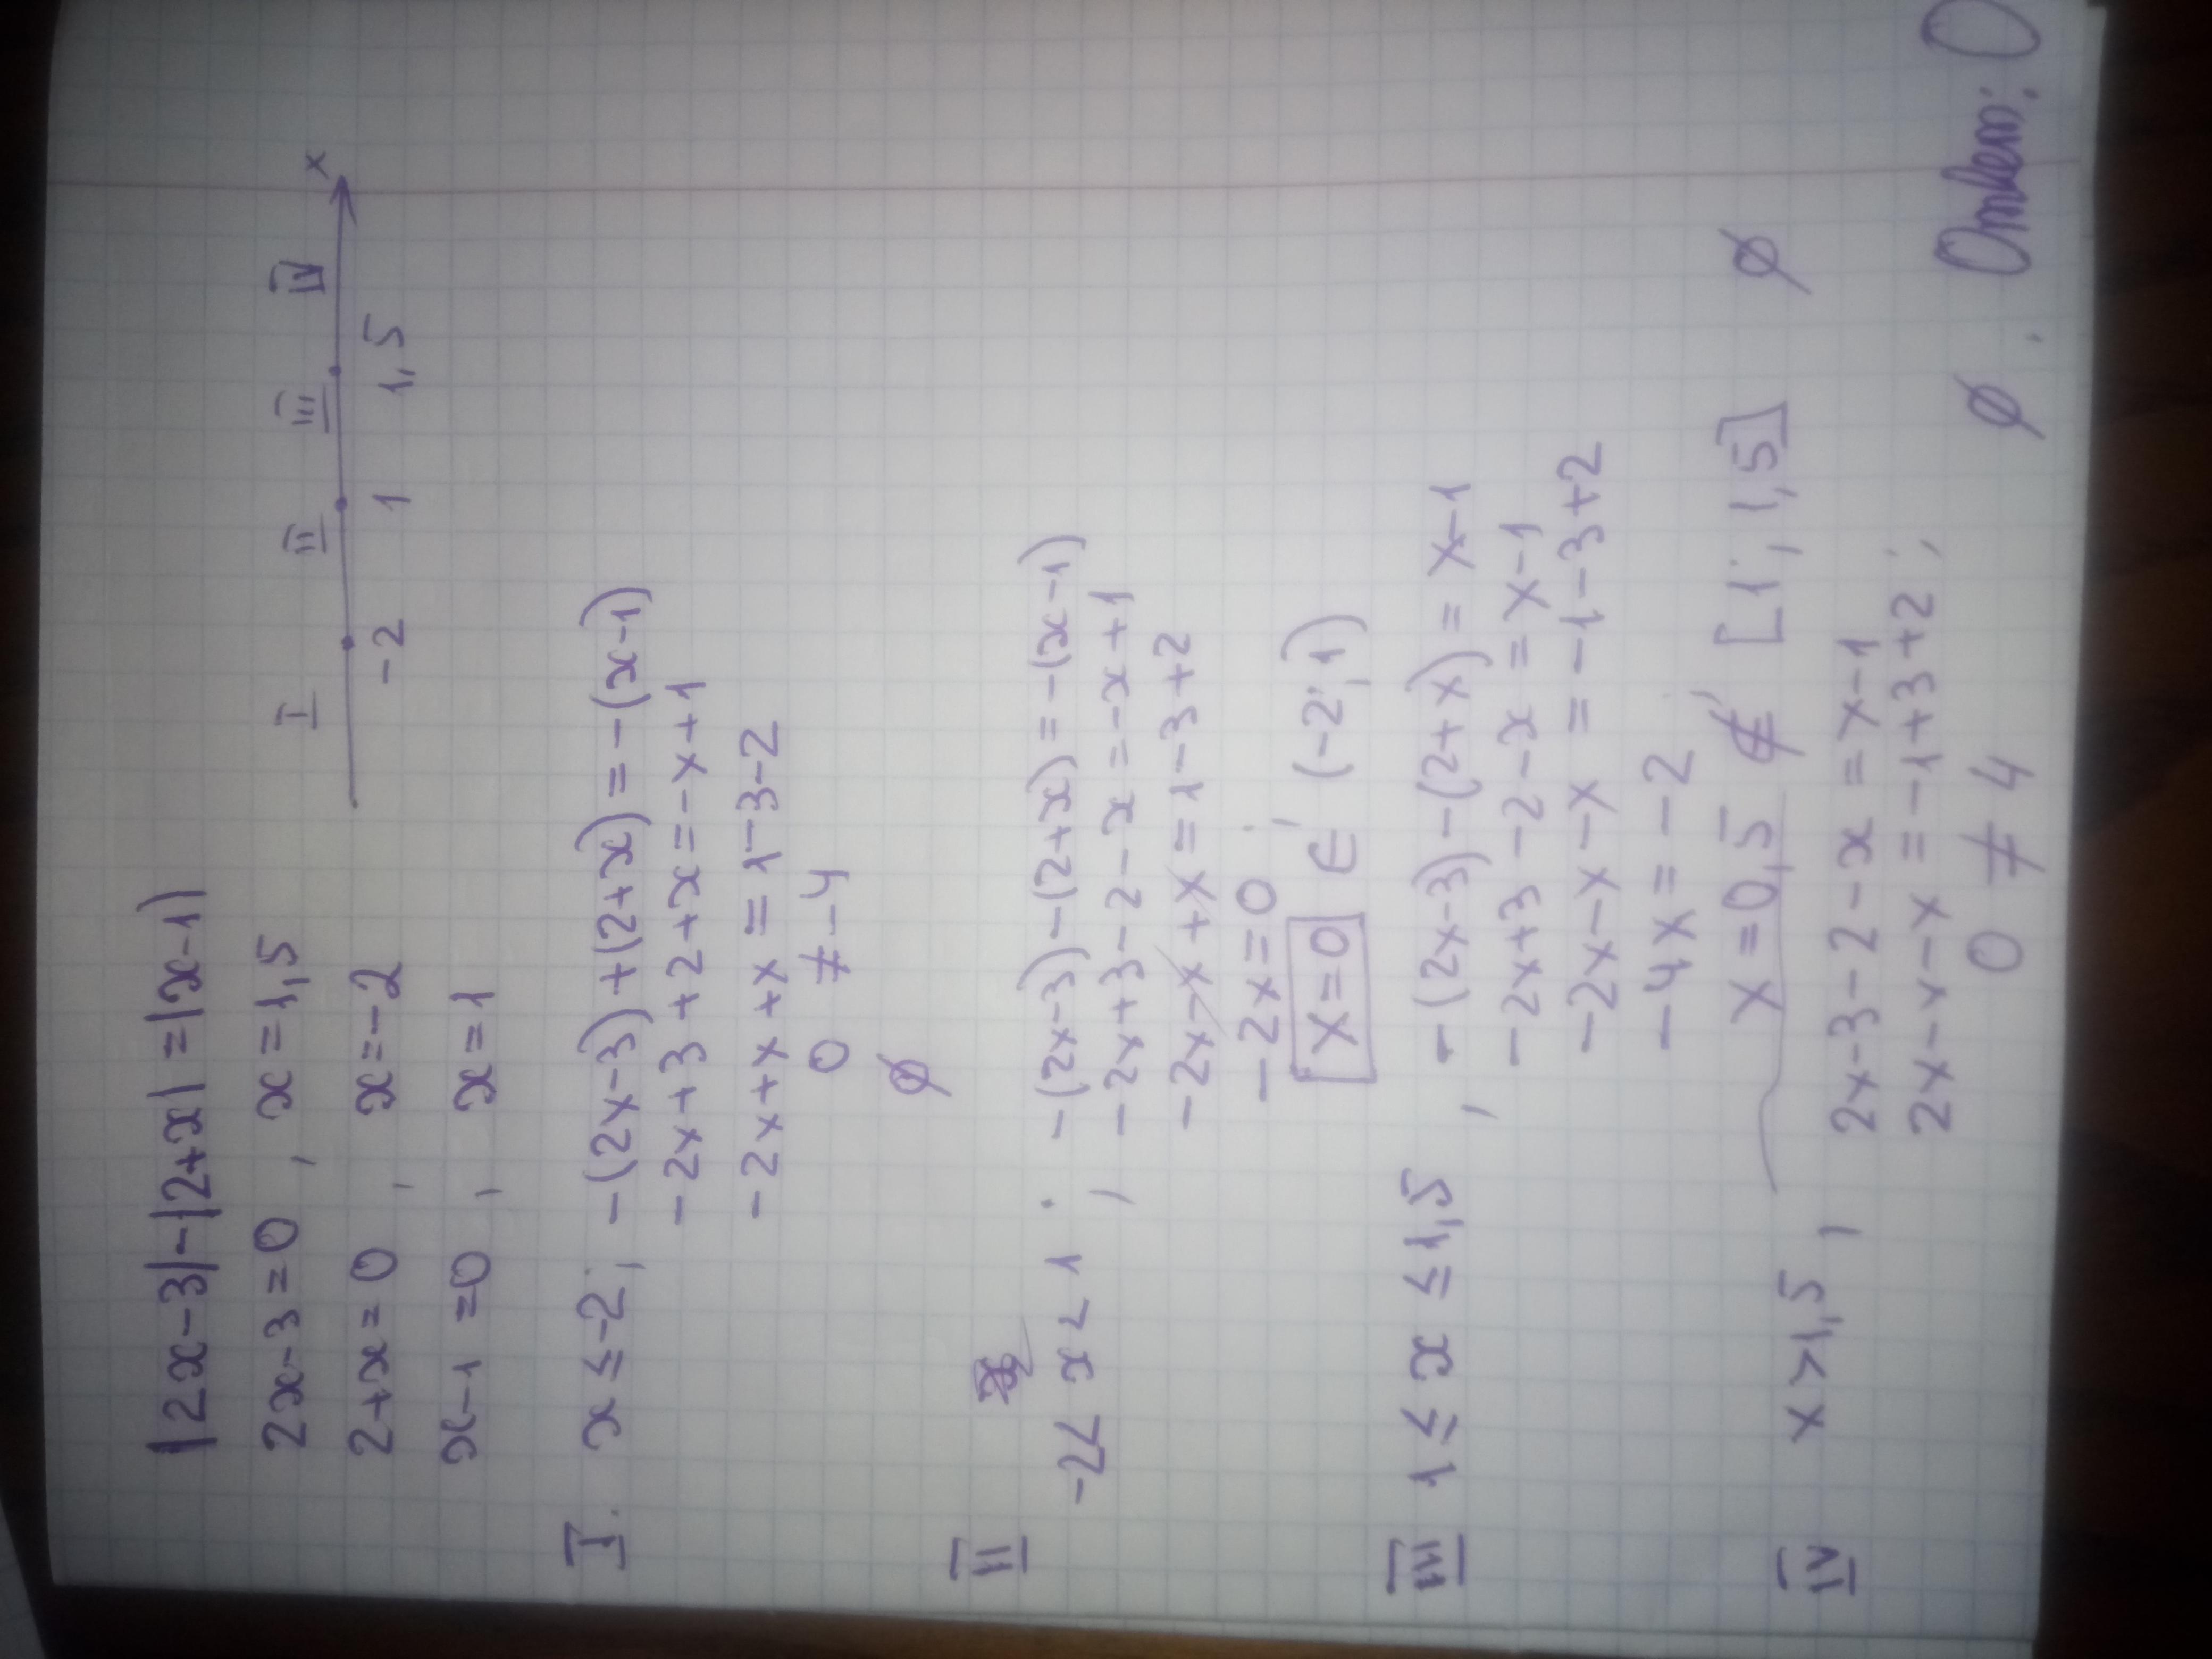 |2x-3|-|2+x|=|x-1|
2x-3=0, x=1,5
2+x=0, x=-2
x-1=0, x=1
I II III IV x
-2 1 1,5
I. x≤-2; -(2x-3)+(2+x)=-(x-1)
-2x+3+2+x=-x+1
-2x+x+x=1-3-2
0≠-4
∅
II -2<x<1; -(2x-3)-(2+x)=-(x-1)
-2x+3-2-x=-x+1
-2x-x+x=1-3+2
-2x=0
x=0 ∈ (-2;1)
III 1≤x≤1,5, -(2x-3)-(2+x)=x-1
-2x+3-2-x=x-1
-2x-x-x=-1-3+2
-4x=-2
x=0,5 ∉ [1; 1,5] ∅
IV x>1,5, 2x-3-2-x=x-1
2x-x-x=-1+3+2;
0≠4 ∅. Ответ: 0